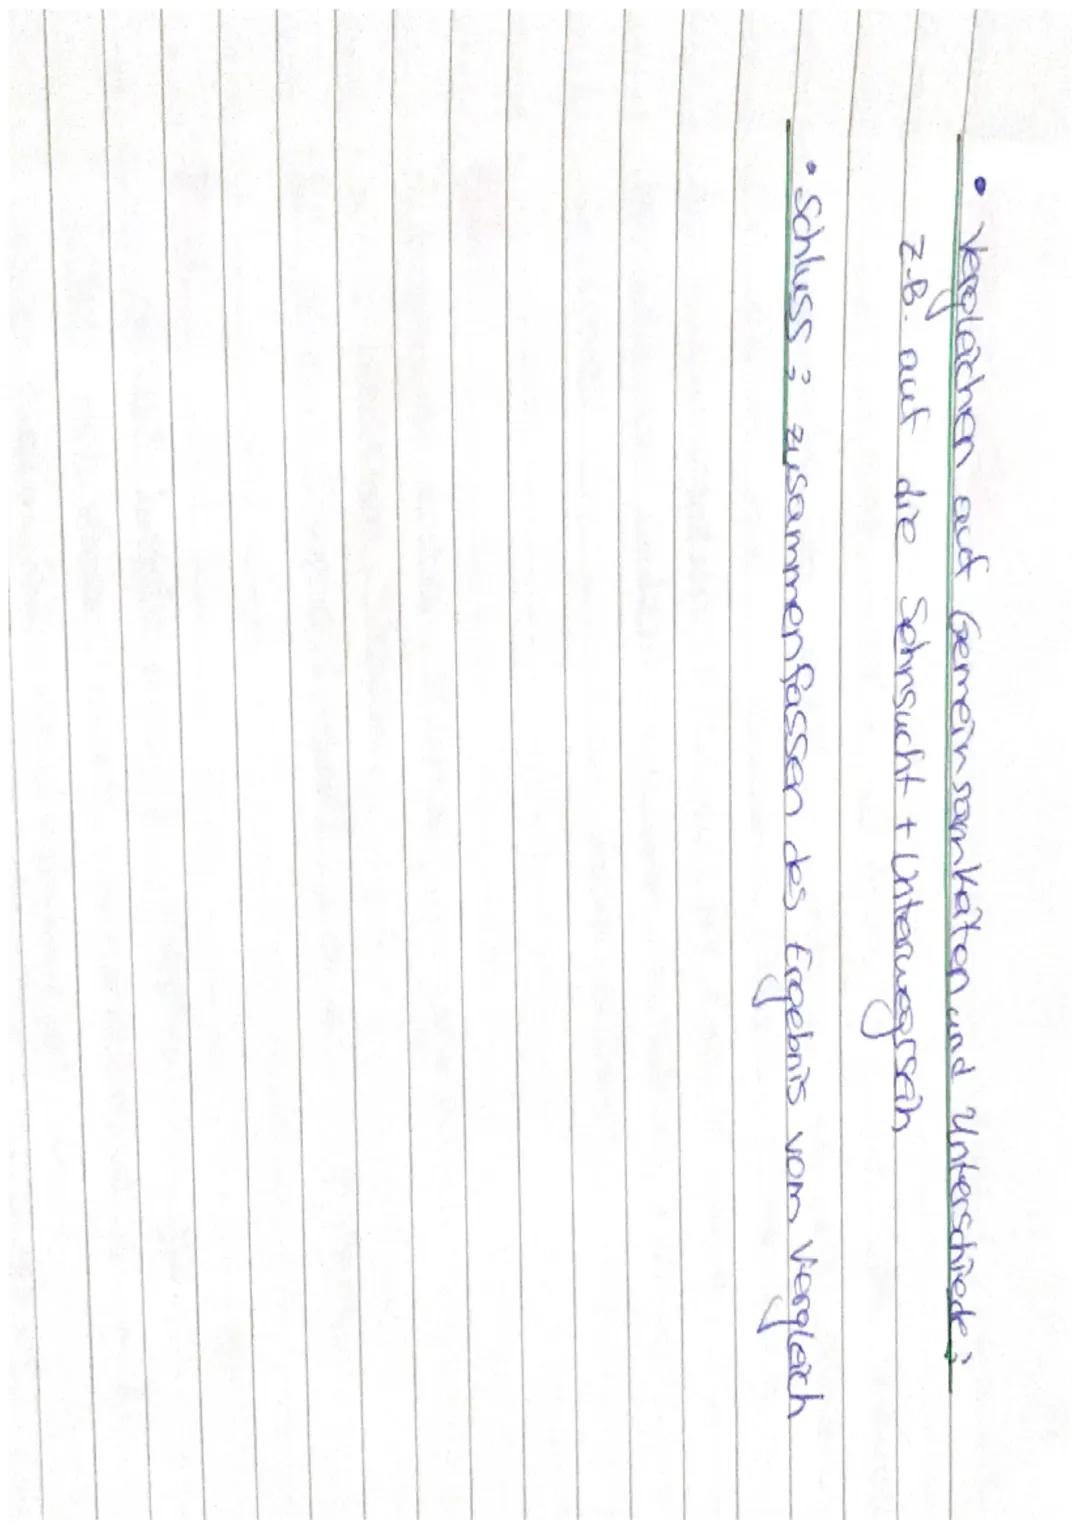 • Vergleichen auf Gemeinsamkeiten und Unterschiede:
z.B. auf die Sehnsucht + Unterwegssein
• Schluss: zusammenfassen des Ergebnis vom Vergleich